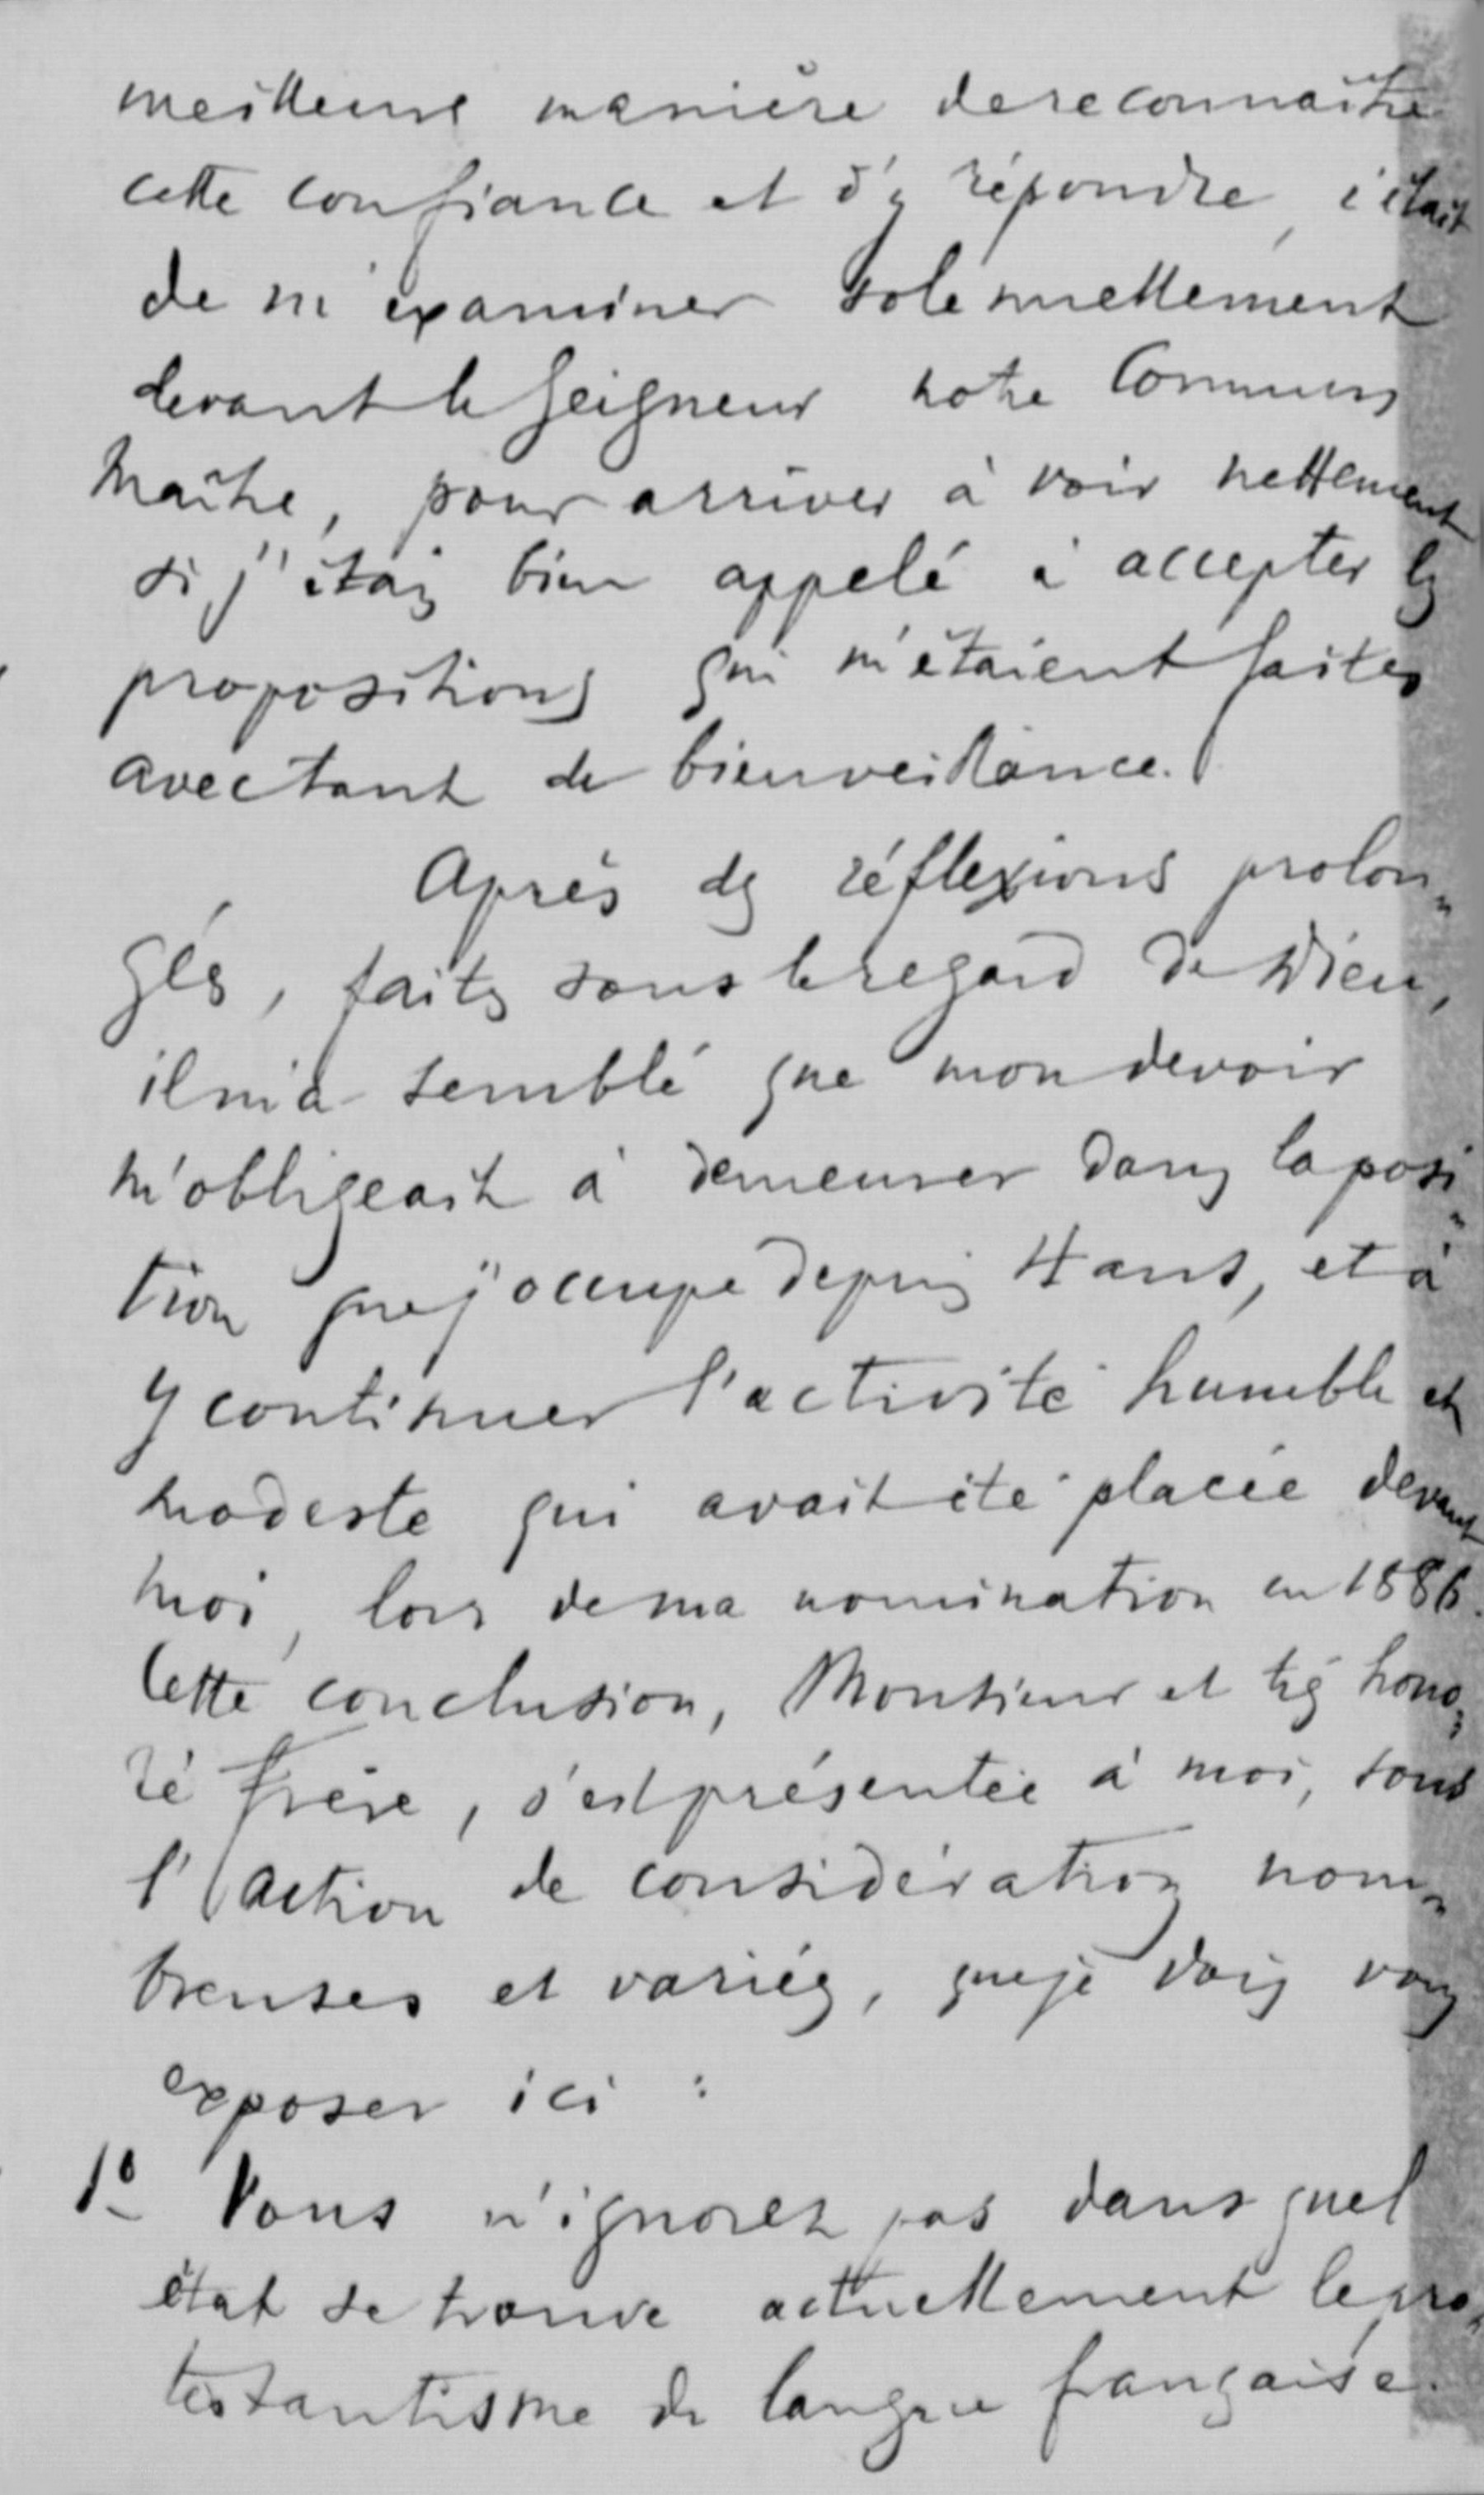 meilleure manière de reconnaître
cette confiance et d'y répondre, c'était
de m'examiner solennellement
devant le Seigneur notre Commun
Maître, pour arriver à voir nettement
si j'étais bien appelé à accepter les
propositions qui m'étaient faites
avec tant de bienveillance.
Après des réflexions prolon„
gés, faites sous le regard de Dieu,
il m'a semblé que mon devoir
m'obligeait à demeurer dans la posi„
tion que j'occupe depuis 4 ans, et à
y continuer l'activité humble et
modeste qui avait été placée devant
moi, lors de ma nomination en 1886.
Cette conclusion, Monsieur et très hono„
ré frère, s'est présentée à moi, sous
l'action de considérations nom„
breuses et variées, que je dois vous
exposer ici :
1º Vous n'ignorez pas dans quel
état se trouve actuellement le pro„
testantisme de langue française.